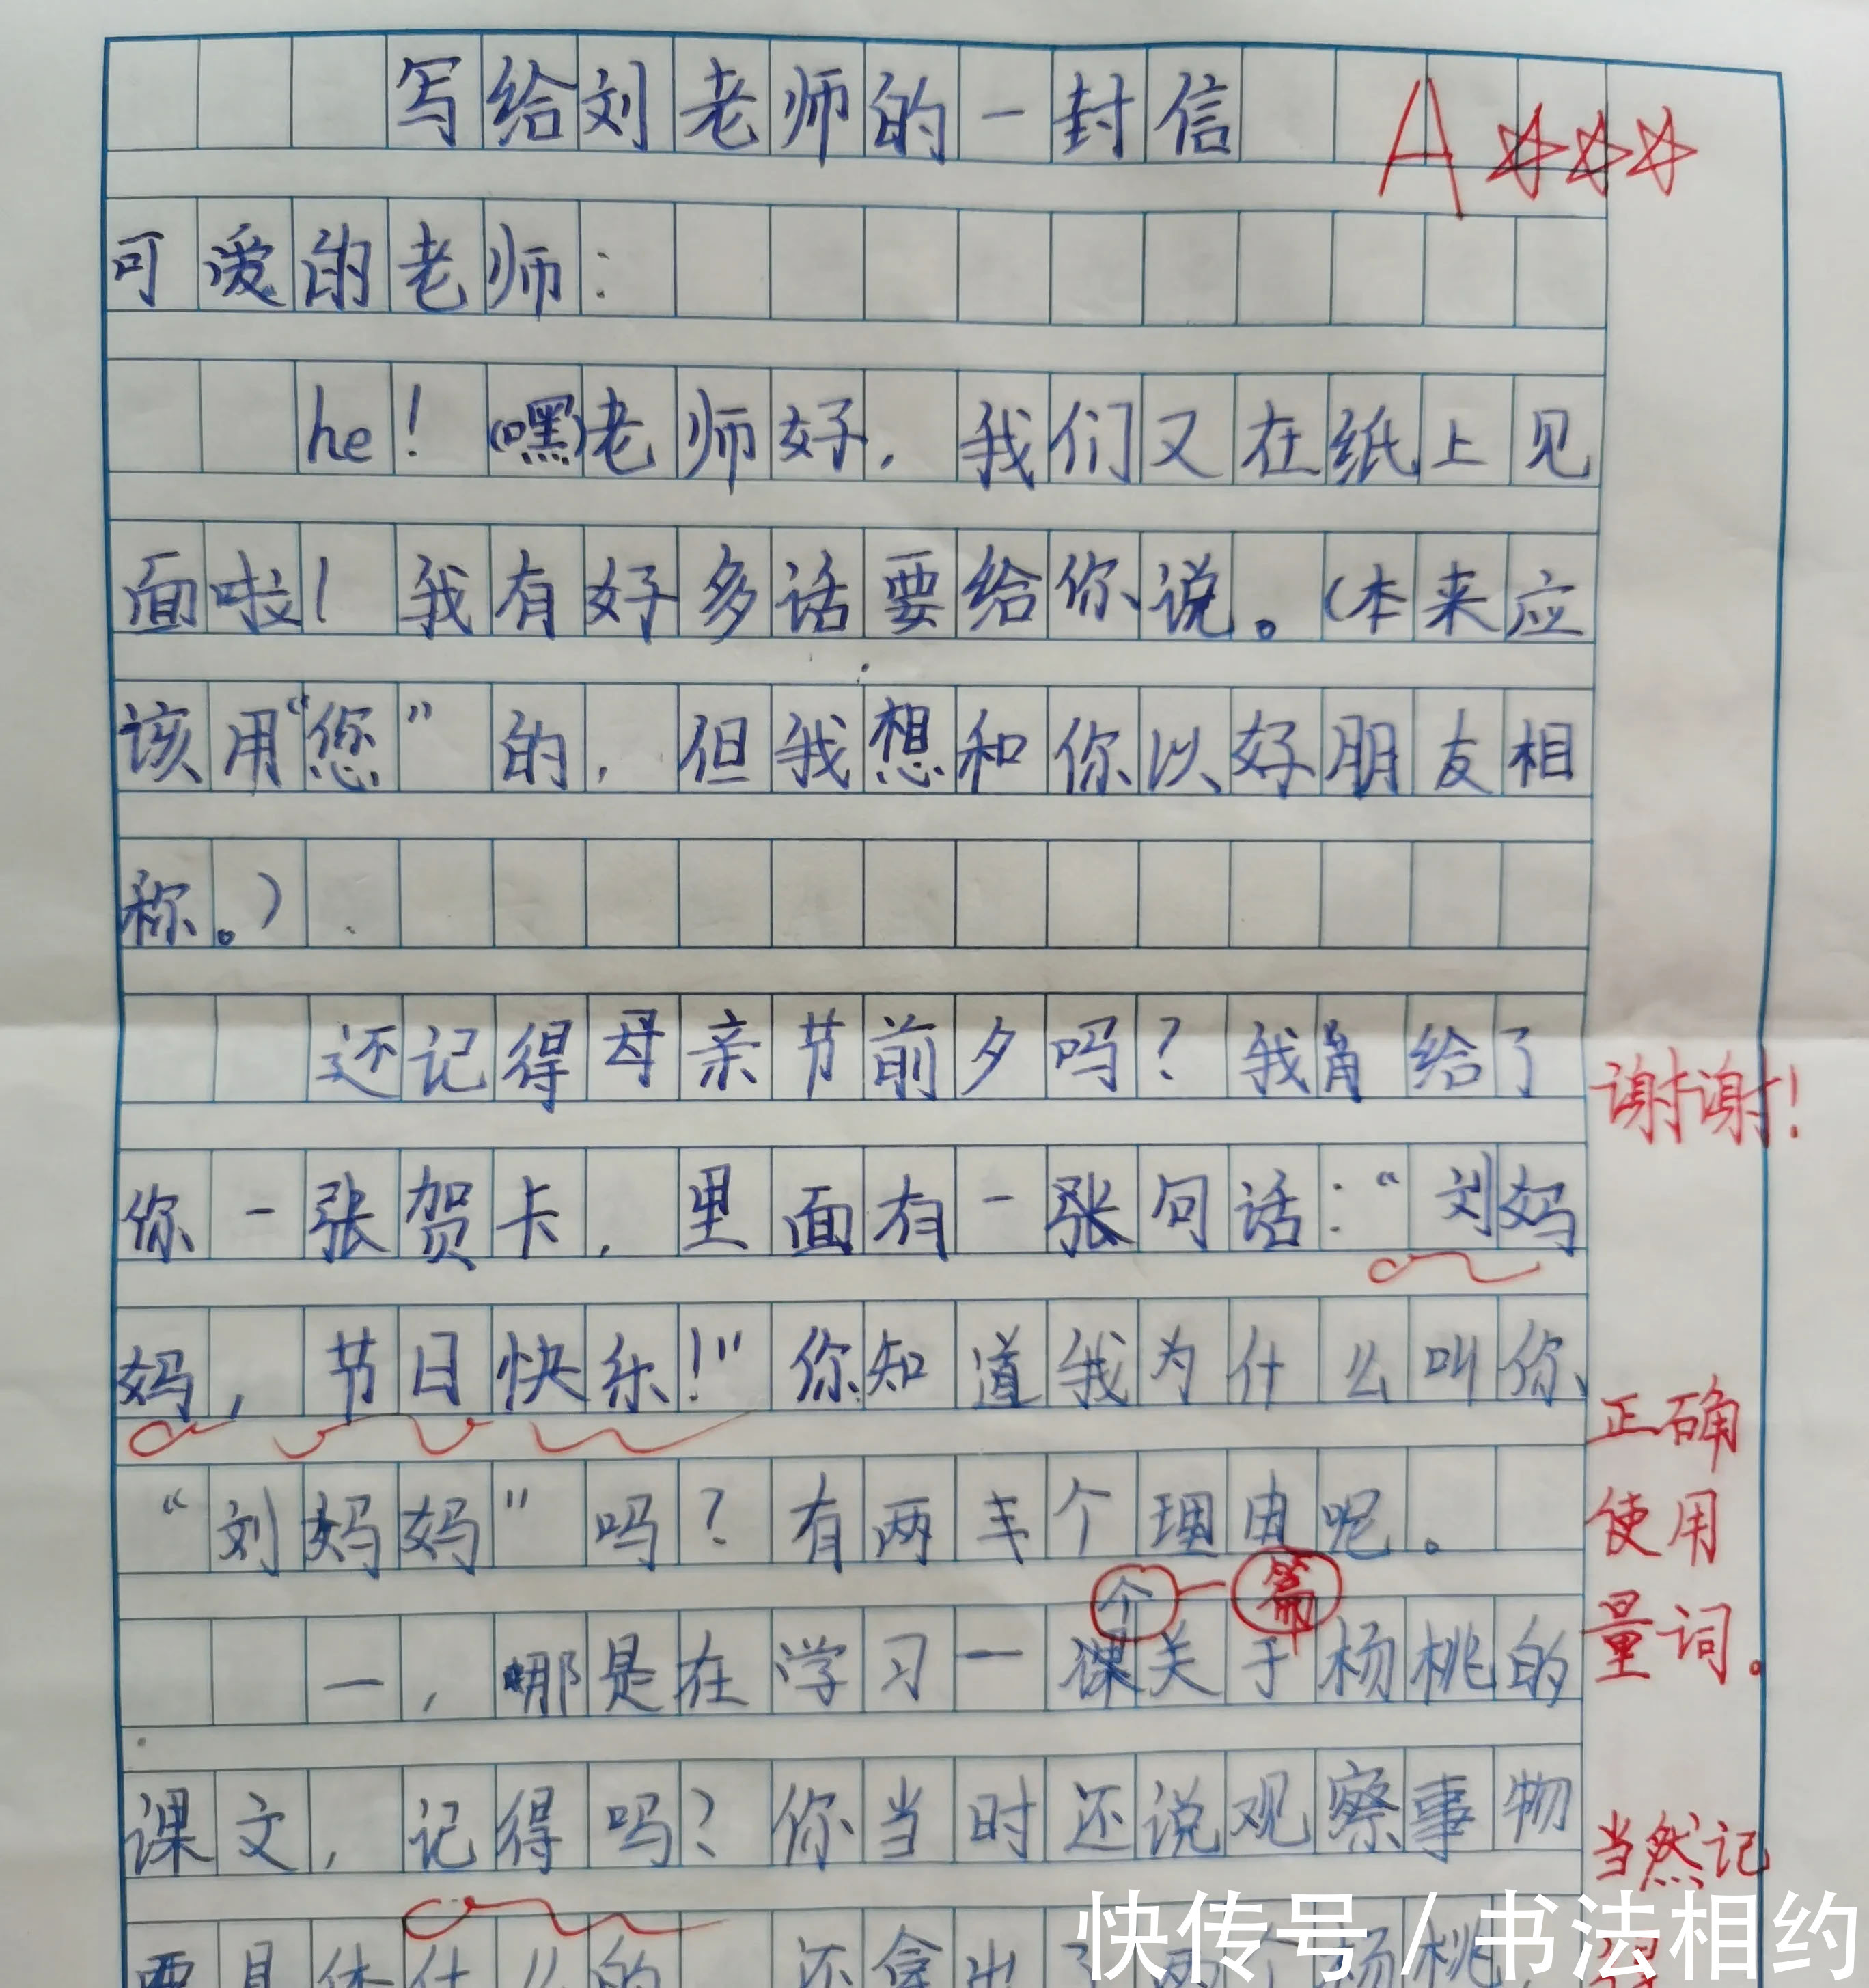 写给刘老师的一封信
A
可爱的老师：
he！(嘿)老师好，我们又在纸上见
面啦！我有好多话要给你说。（本来应
该用“您”的，但我想和你以好朋友相
称。）
还记得母亲节前夕吗？我 给了
谢谢！
你一张贺卡，里面有一张句话：“刘妈
妈，节日快乐！”你知道我为什么叫你
“刘妈妈”吗？有两 个理由呢。
正确
使用
量词。
个 篇
一，哪是在学习一课关于杨桃的
课文，记得吗？你当时还说观察事物
当然记
要具体什么的 还拿出了两个杨桃，
快传号 / 书法相约